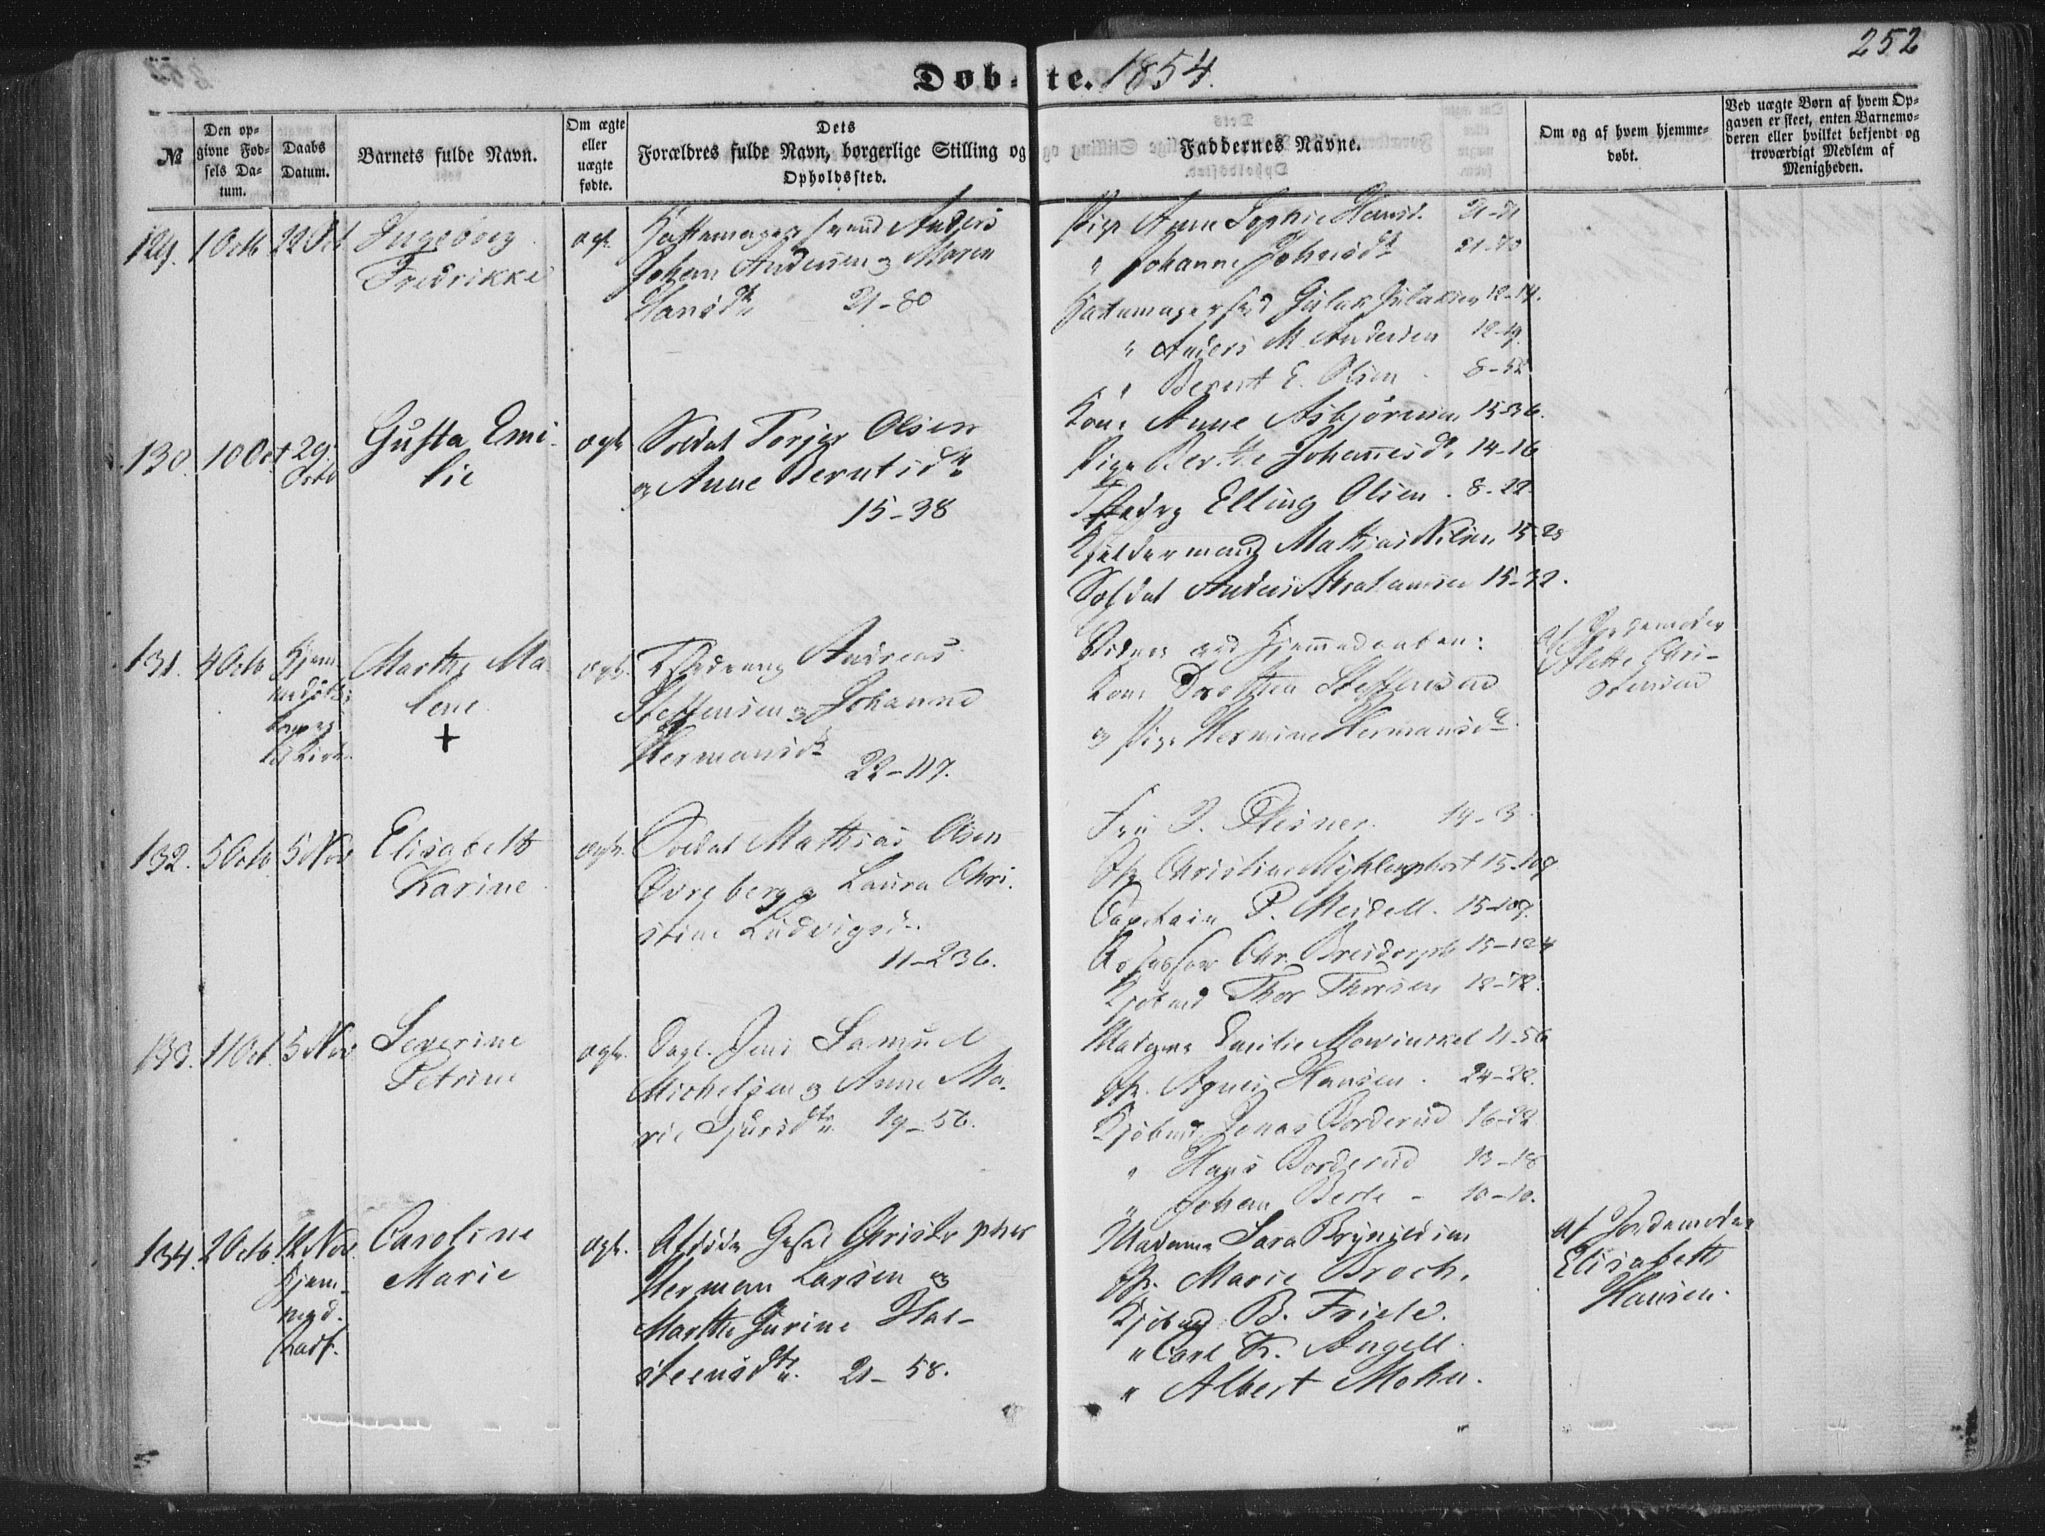 Døb- te. 1854.
252
№
Den op-
givne Fød-
sels Da-
tum.
Daabs
Datum.
Barnets fulde Navn.
Om ægte
eller
uægte
fødte.
Dets
Forældres fulde Navn, borgerlige Stilling og
Opholdssted.
Faddernes Navne.
Om og af hvem hjemme-
døbt.
Ved uægte Børn af hvem Op-
gaven er skeet, enten Barnemo-
deren eller hvilket bekjendt og
troværdigt Medlem af
Menigheden.
129. 1 Octb 22 Oct
Ingeborg
Fredrikke
ægt.
Anders
Johan Andersen og Maren
Hansdtr 21-80
Pige Anne Sophie Hansd. 21-21
" Johanne Johnsdtr
12-14.
" Anders M. Andersen 12-19.
" Berent E. Olsen 8-52
130. 10 Oct 29
Octb
Gusta Emi-
lie
ægt.
Soldat Torjer Olsen
og Anne Berntsdtr
15-38
Kone Anne Asbjørnsen 15-36.
Pige Berthe Johannesdr 14-16
Elling Olsen. 8-22.
Mathias Nilsen 15-29
Soldat Anders Abrahamsen 15-32.
131. 4 Octb
Hjem-
Kirke.
Marthe Ma
lene
+
ægt.
Andreas
Steffensen og Johanne
Hermansdtr
22-117.
Vidner ved Hjemmedaaben:
Kone Dorothea Steffensen
og Pige Hermine Hermansdr.
af Jordemoder
Mette Chri-
stensen
132. 5 Octb 5 Nov
Elisabeth
Karine
ægt.
Soldat Mathias Olsen
Øvreberg og Laura Chri-
stine Ludvigsd.
11-236.
Fru J. Plesner. 14-3
Jfr Christine Myhlenphort 15-109
Captain P. Meidell. 15-109.
Assessor Chr. 15-124
Kjøbmd Thor Thorsen 12-72.
133. 11 Oct. 5 Nov
Severine
Petrine
ægt.
Dagl. Jens Samuel
Michelsen og Anne Ma-
rie Sjursdtr. 19-56.
Madame Emilie Mowinckel 11-56
Jfr. Agnes Hansen. 24-28.
Kjøbmd Jonas Borderud 16-22
" Hans Borderud 13-18
" Johan Berle - 10-10.
134. 2 Octb. 12 Nov.
Hjem-
med.
Caroline
Marie
ægt.
Afdøde Christopher
Herman Larsen og
Marthe Gurine Hal-
steensdtr. 21-58.
Madame Sara Brynildsen
Jfr. Marie Broch.
Kjøbmd B. Friele.
" Carl K. Angell.
" Albert Mohn.
af Jordemoder
Elisabeth
Hansen.